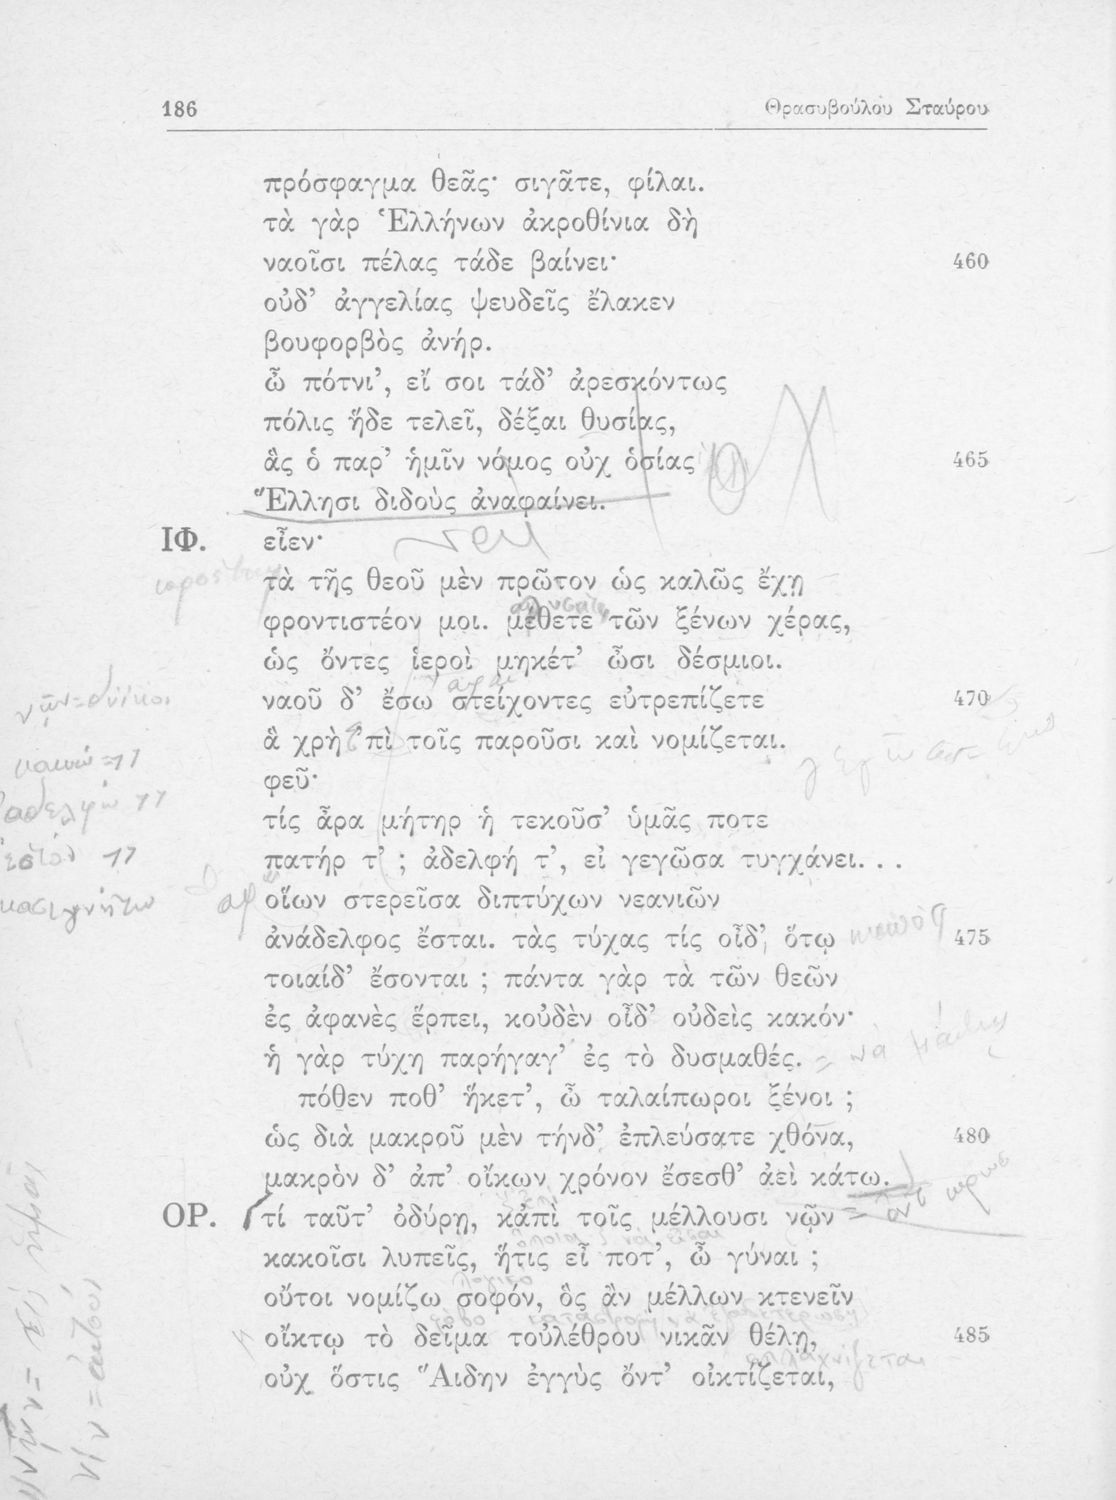 186
Θρασυβούλου Σταύρου
πρόσφαγμα θεᾶς· σιγᾶτε, φίλαι.
τὰ γὰρ Ἑλλήνων ἀκροθίνια δὴ
ναοῖσι πέλας τάδε βαίνει· 460
οὐδ’ ἀγγελίας ψευδεῖς ἔλακεν
βουφορβὸς ἀνήρ.
ὦ πότνι’, εἴ σοι τάδ’ ἀρεσκόντως
πόλις ἥδε τελεῖ, δέξαι θυσίας,
ἃς ὁ παρ’ ἡμῖν νόμος οὐχ ὁσίας 465
Ἕλλησι διδοὺς ἀναφαίνει.
ΙΦ. εἶεν·
τὰ τῆς θεοῦ μὲν πρῶτον ὡς καλῶς ἔχῃ
φροντιστέον μοι. μέθετε τῶν ξένων χέρας,
ὡς ὄντες ἱεροὶ μηκέτ’ ὦσι δέσμιοι.
ναοῦ δ’ ἔσω στείχοντες εὐτρεπίζετε 470
ἃ χρὴ ’πὶ τοῖς παροῦσι καὶ νομίζεται.
φεῦ·
τίς ἆρα μήτηρ ἡ τεκοῦσ’ ὑμᾶς ποτε
πατήρ τ’ ; ἀδελφή τ’, εἰ γεγῶσα τυγχάνει...
οἵων στερεῖσα διπτύχων νεανιῶν
ἀνάδελφος ἔσται. τὰς τύχας τίς οἶδ’, ὅτῳ 475
τοιαίδ’ ἔσονται ; πάντα γὰρ τὰ τῶν θεῶν
ἐς ἀφανὲς ἕρπει, κοὐδὲν οἶδ’ οὐδεὶς κακόν·
ἡ γὰρ τύχη παρήγαγ’ ἐς τὸ δυσμαθές.
πόθεν ποθ’ ἥκετ’, ὦ ταλαίπωροι ξένοι ;
ὡς διὰ μακροῦ μὲν τήνδ’ ἐπλεύσατε χθόνα, 480
μακρὸν δ’ ἀπ’ οἴκων χρόνον ἔσεσθ’ ἀεὶ κάτω.
ΟΡ. τί ταῦτ’ ὀδύρῃ, κἀπὶ τοῖς μέλλουσι νῷν
κακοῖσι λυπεῖς, ἥτις εἶ ποτ’, ὦ γύναι ;
οὔτοι νομίζω σοφόν, ὃς ἂν μέλλων κτενεῖν
οἴκτῳ τὸ δεῖμα τοὐλέθρου νικᾶν θέλῃ, 485
οὐχ ὅστις Ἅιδην ἐγγὺς ὄντ’ οἰκτίζεται,